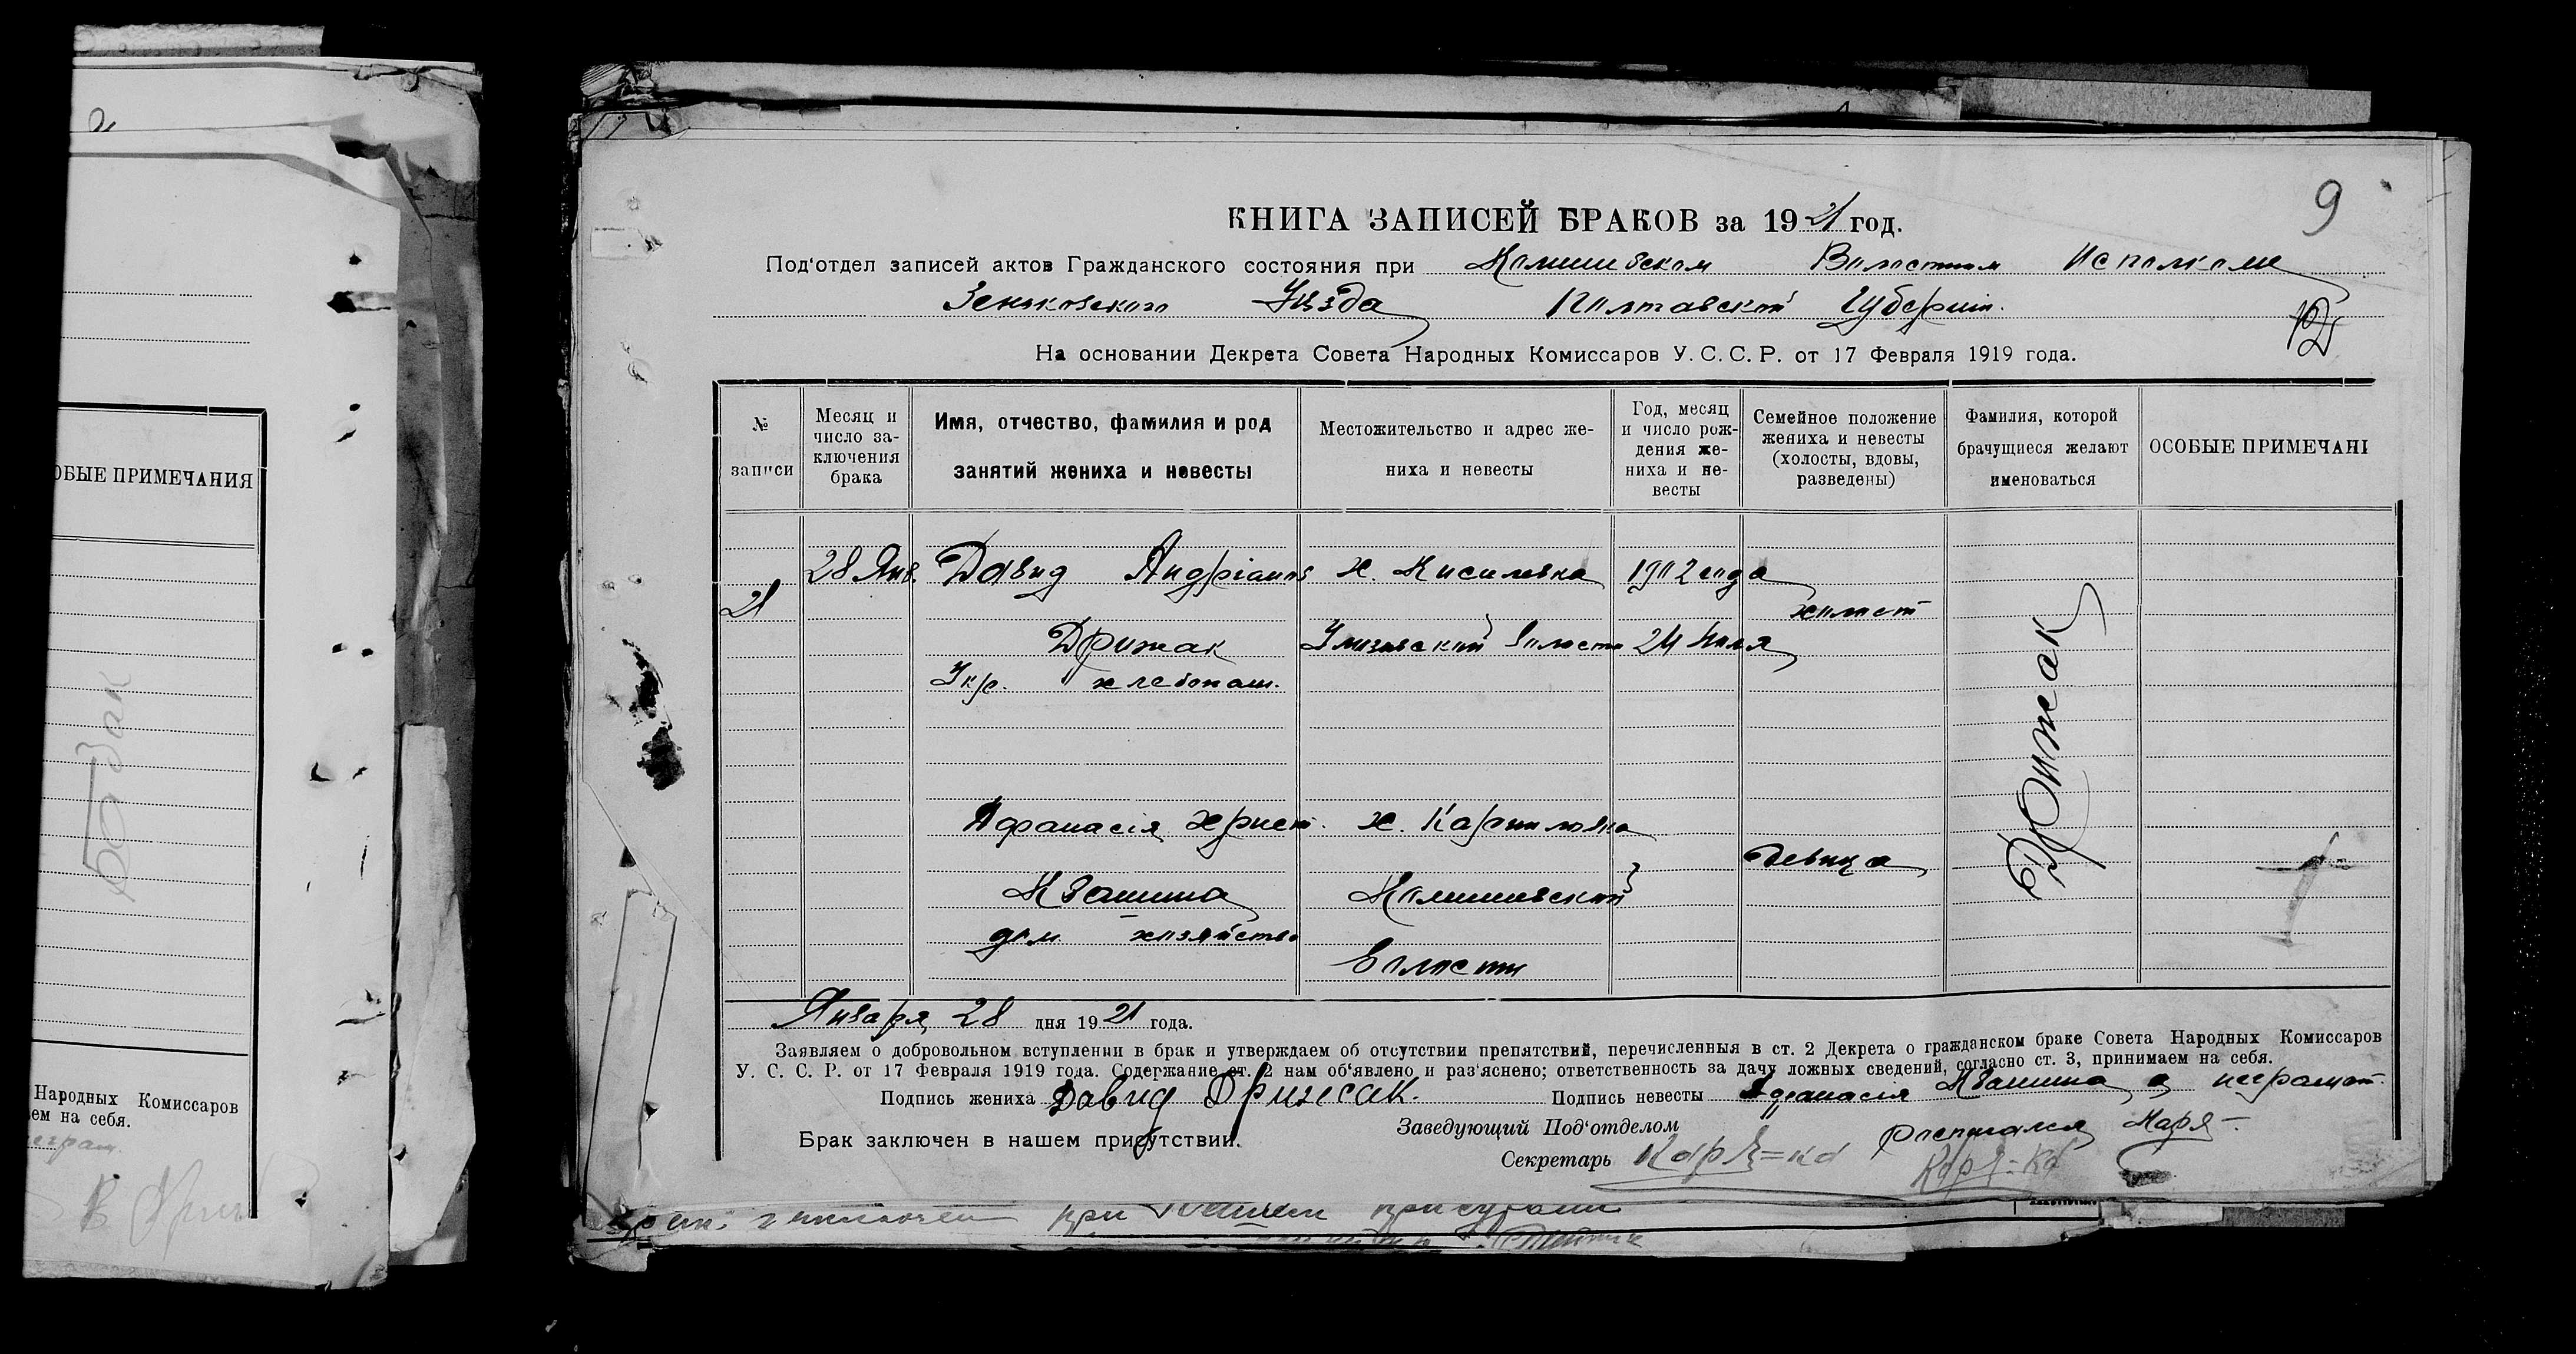 ОБЫЕ ПРИМЕЧАНИЯ
Народных Комиссаров
ем на себя.
9
КНИГА ЗАПИСЕЙ БРАКОВ за 1921 год.
Под‘отдел записей актов Гражданского состояния при Исполкоме
Зеньковского Уѣзда Полтавской Губерніи.
На основании Декрета Совета Народных Комиссаров У. С. С. Р. от 17 Февраля 1919 года.
№ записи
Месяц и число за-
ключения
брака
Имя, отчество, фамилия и род
занятий жениха и невесты
Местожительство и адрес же-
ниха и невесты
Год, месяц
и число рож-
дения же-
ниха и не-
весты
Семейное положение
жениха и невесты
(холосты, вдовы,
разведены)
Фамилия, которой
брачущиеся желают
именоваться
ОСОБЫЕ ПРИМЕЧАНІ
28 Янв. Давид Андріанов х. Киселевка 1902 года
21
холост
Дрижак волости 24 Июля
Укр. хлебопаш.
Дрижак
Афанасія Христ. х.
девица
Квашина
дом. хозяйство
Волости
Января 28 дня 1921 года.
Заявляем о добровольном вступлении в брак и утверждаем об отсутствии препятствий, перечисленныя в ст. 2 Декрета о гражданском браке Совета Народных Комиссаров
У. С. С. Р. от 17 Февраля 1919 года. Содержание ст. 2 нам об‘явлено и раз‘яснено; ответственность за дачу ложных сведений, согласно ст. 3, принимаем на себя.
Подпись жениха Давид Дрижак. Подпись невесты Афанасія Квашина а неграмот.
Брак заключен в нашем присутствии.
Заведующий Под‘отделом
Секретарь